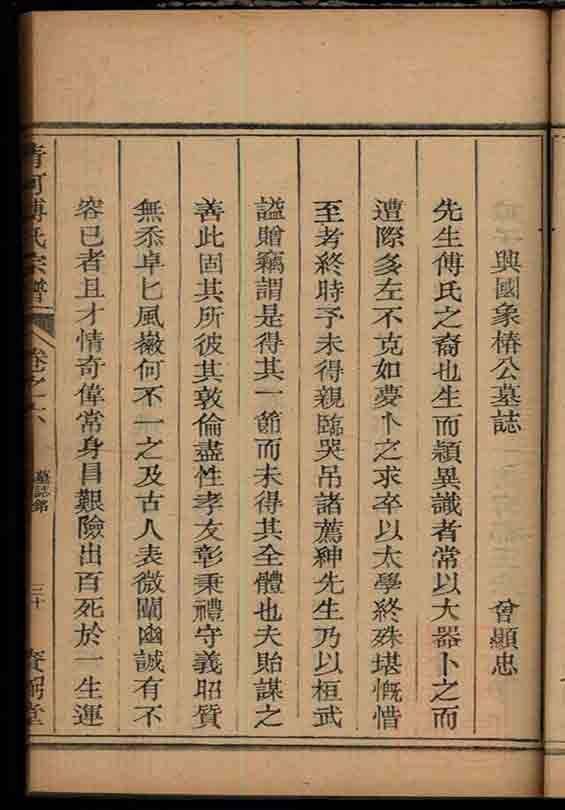 興國象椿公墓誌 曾顯忠
先生傅氏之裔也生而穎異識者常以大器卜之而
遭際多左不克如夢卜之求卒以太學終殊堪慨惜
至考終時予未得親臨哭吊諸薦紳先生乃以桓武
謚贈竊謂是得其一節而未得其全體也夫貽謀之
善此固其所彼其敦倫盡性孝友彰秉禮守義昭質
無忝卓匕風徽何不一之及古人表微闡幽誠有不
容已者且才情奇偉常身冒艱險出百死於一生運
清河傅氏宗譜 卷之六 墓誌銘 三十 賚弼堂